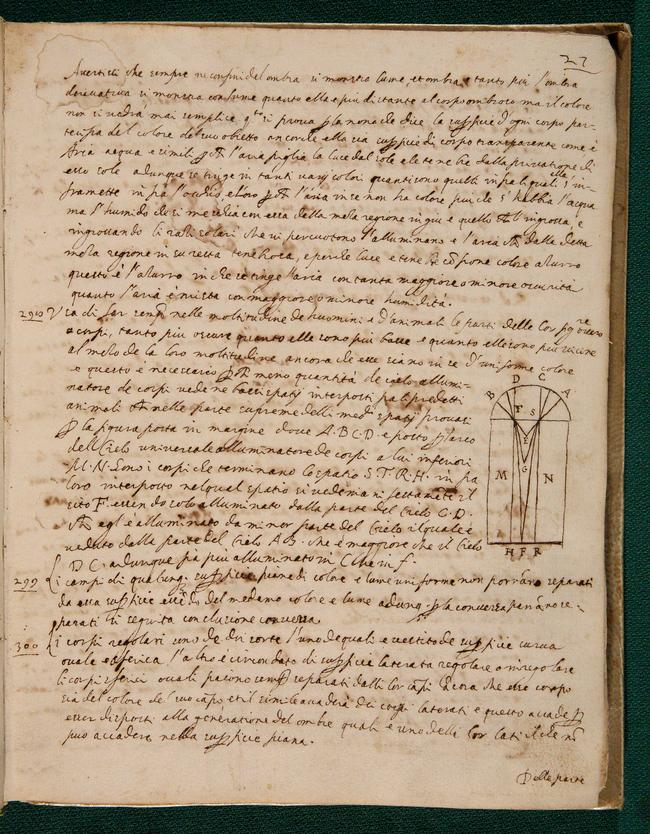 27
Avertisci che sempre ne confini del ombra si mostra lume, et ombra, e tanto più l'ombra
derivativa si mostra con lume quanto ella è piu distante al corpo ombroso ma il colore
non si vedrà mai semplice si prova la nona che dice la superficie d'ogni corpo par-
tecipa del colore del suo obietto ancorche ella sia superficie di corpo transparente come è
Aria aqua e simili l'aria piglia la luce dal sole e le tenebre dalla privatione di
esso sole adunque se tinge in tanti varij colori quanti sono quelli infra li quali ella s'in-
framette in fra l'occhio, e loro l'aria in se non ha colore più che s' habbia l'acqua
ma l'humido che si mescola con essa dalla meza regione in giu e quello che l'ingrossa, e
ingrossando li razi solari che vi percuotono l'alluminano e l'aria dalla detta
meza regione in su resta tenebrosa, e perche luce e tenebre compone colore azurro
questo è l'azurro in che se tinge l'aria con tanta maggiore o minore oscurità
quanto l'aria è mista con maggiore o minore humidità.
298 Usa di far nelle moltitudine de huomini e d'animali le parti delle lor figure overo
corpi, tanto più oscure quanto elle sono più basse e quanto elle sono più vicine
al mezo de la loro moltitudine ancora che esse siano in se d'uniforme colore
e questo è necessario meno quantità de cielo allumi-
natore de corpi vede ne bassi spatij interposti fra li predetti
animali che nelle parte supreme delli medesimi spatij provasi
la figura posta in margine dove A.B.C.D. è posto arco
dell Cielo universale alluminatore de corpi a lui inferiori
M. N. sono i corpi che terminano lo spatio S.T.R.H. in fra
loro interposto nel qual spatio si vede manifestamente il
sito F. essendo solo alluminato dalla parte del cielo C.D.
è alluminato da minor parte del Cielo il quale è
veduto dalla parte del Cielo A B. che è maggiore che il Cielo
D C. adunque fia più alluminato in che in f.
B D C A
T S
E
G
M N
H F R
299 i campi di qualunque superficie piane di colore e lume uniforme non porrano separati
da essa superficie essendo del medemo colore e lume adunque la conversa parrano se-
parati li seguita conclusione conversa
300 i corpi regolari sono de doi sorte l'uno de quali è vestito de superficie curva
ovale o sferica l'altro è circondato di superficie laterata regolare o irregolare
li corpi sferici ovali paiono sempre separati dalli lor campi ancora che esso corpo
sia del colore del suo campo, et il simile accaderà de corpi laterati e questo accade
esser disposti alla generatione del ombre quali è uno delli lor lati il che non
puo accadere nella superficie piana.
Delle parte